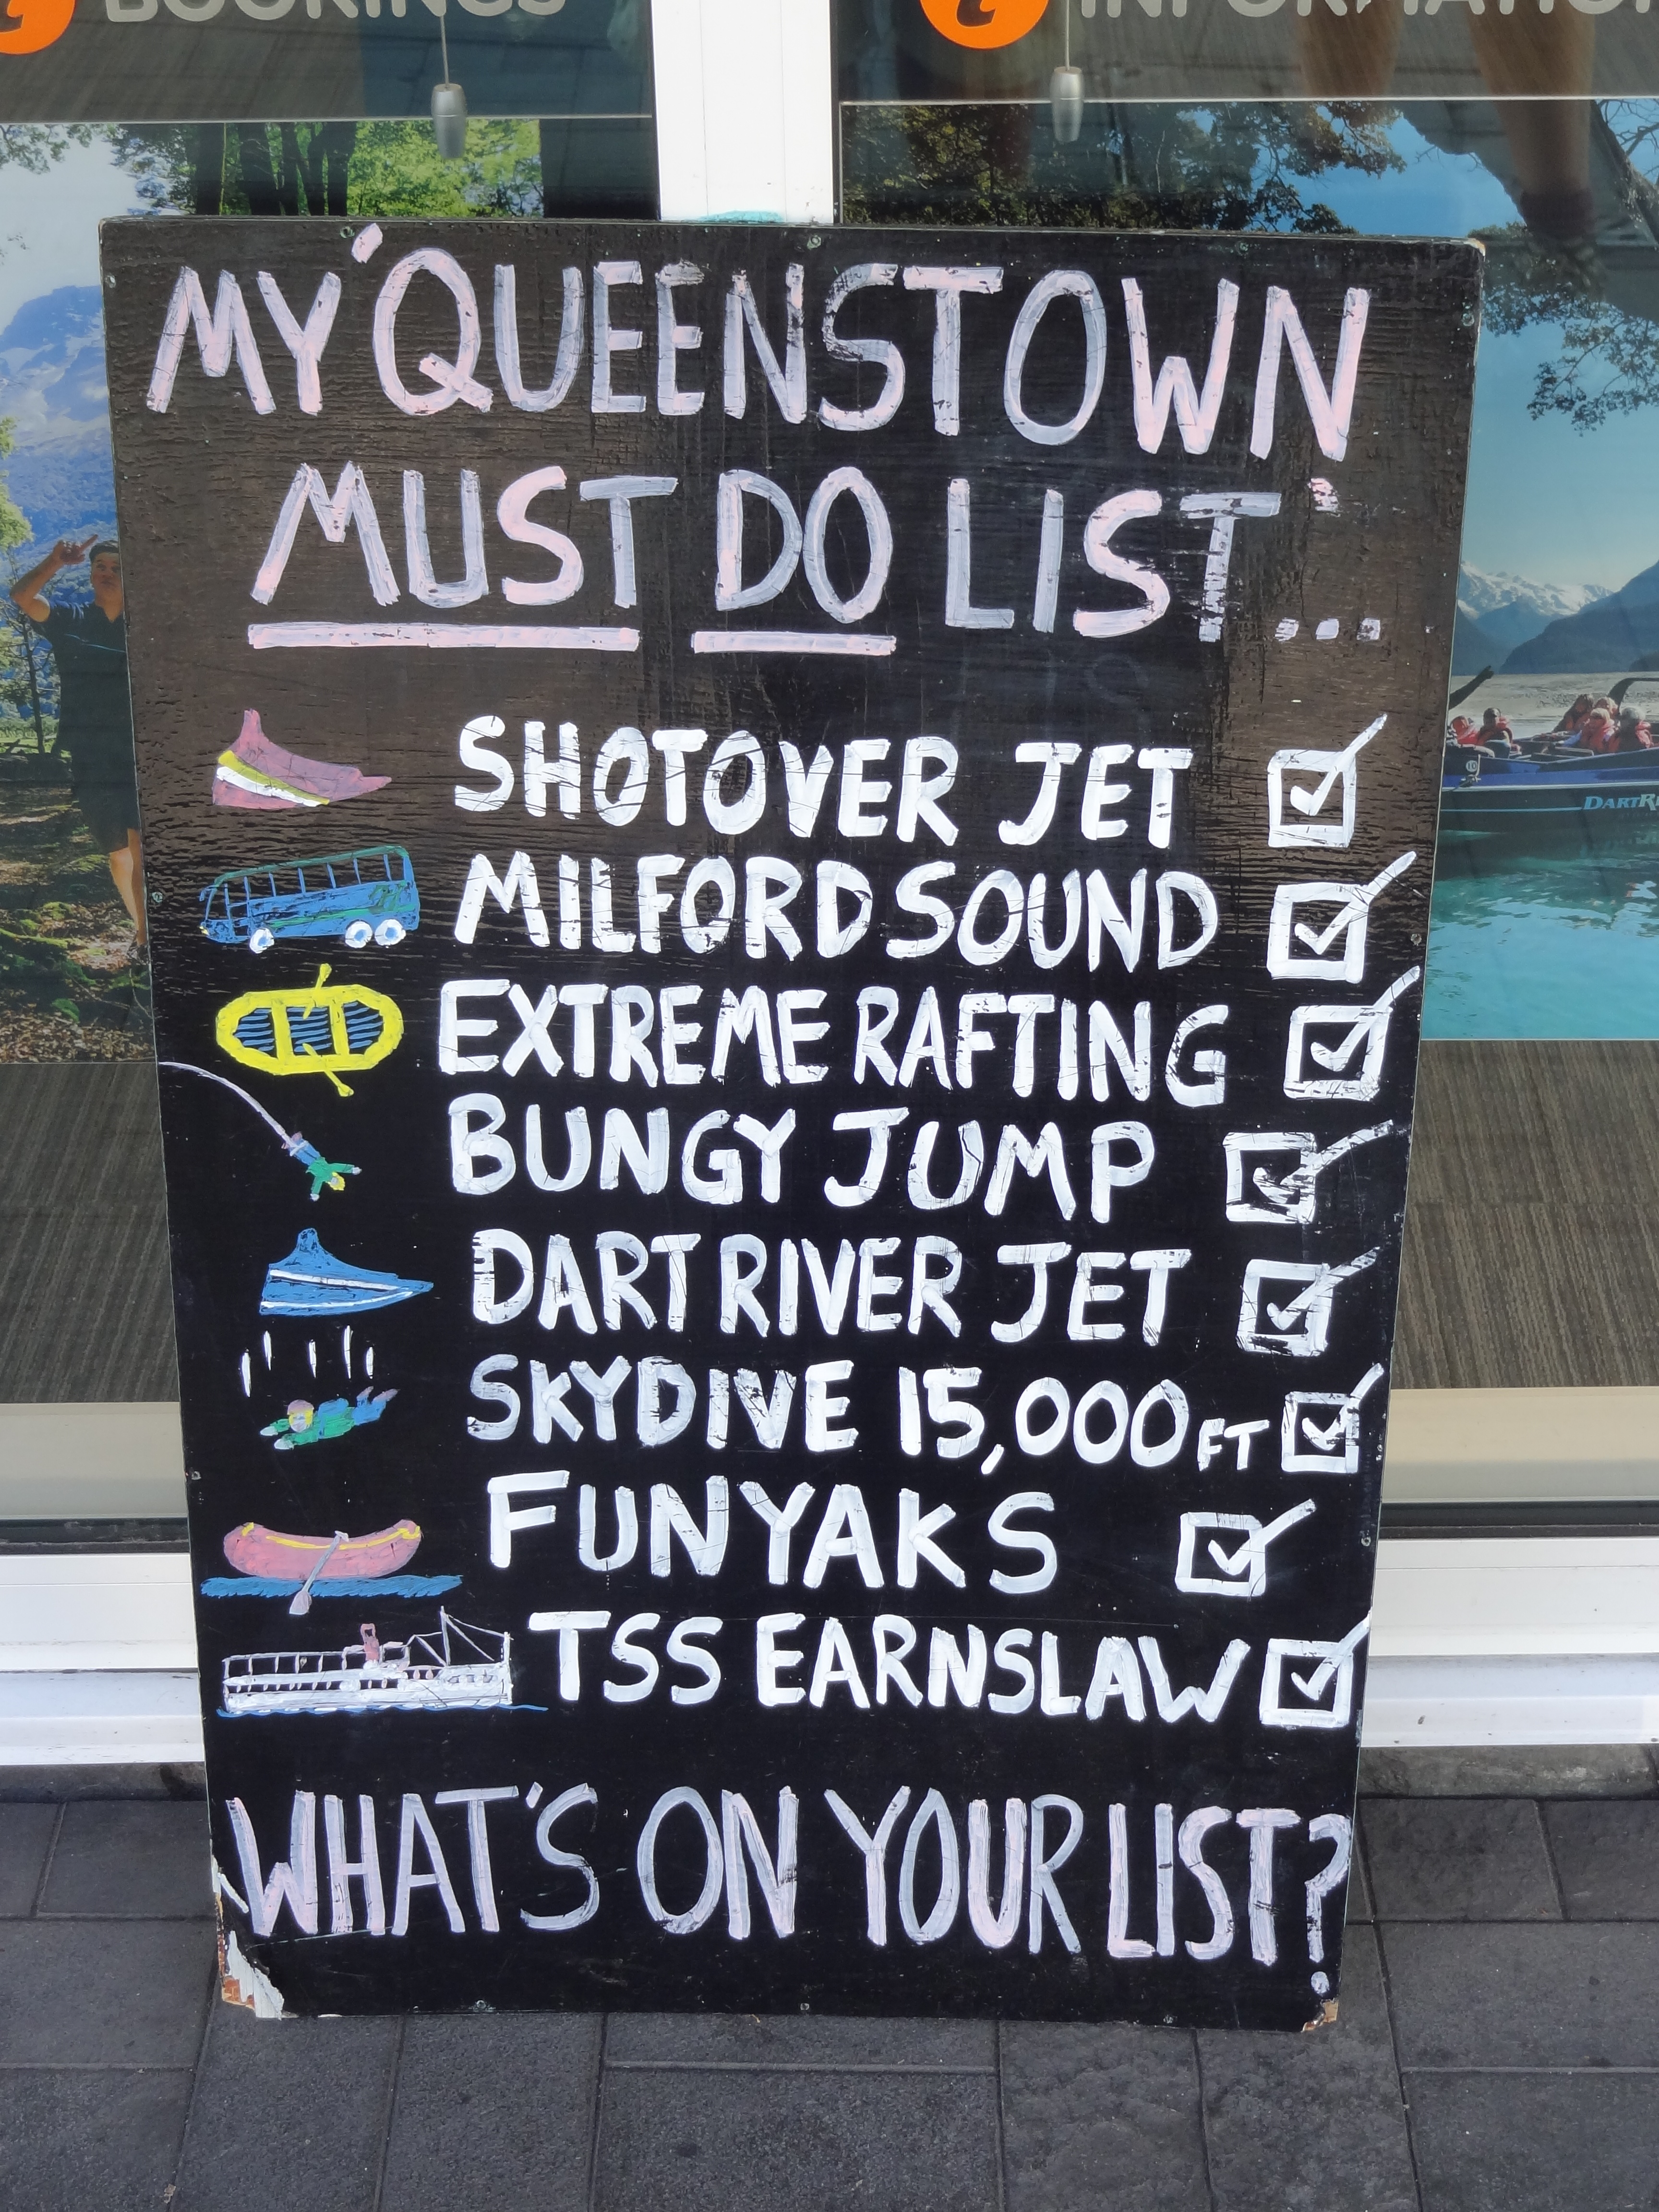 BOOKINGS
INFORMATION
MY 'QUEENSTOWN
MUST DO LIST'...
SHOTOVER JET
MILFORD SOUND
EXTREME RAFTING
BUNGY JUMP
DART RIVER JET
SKYDIVE 15,000 FT
FUNYAKS
TSS EARNSLAW
WHAT'S ON YOUR LIST?